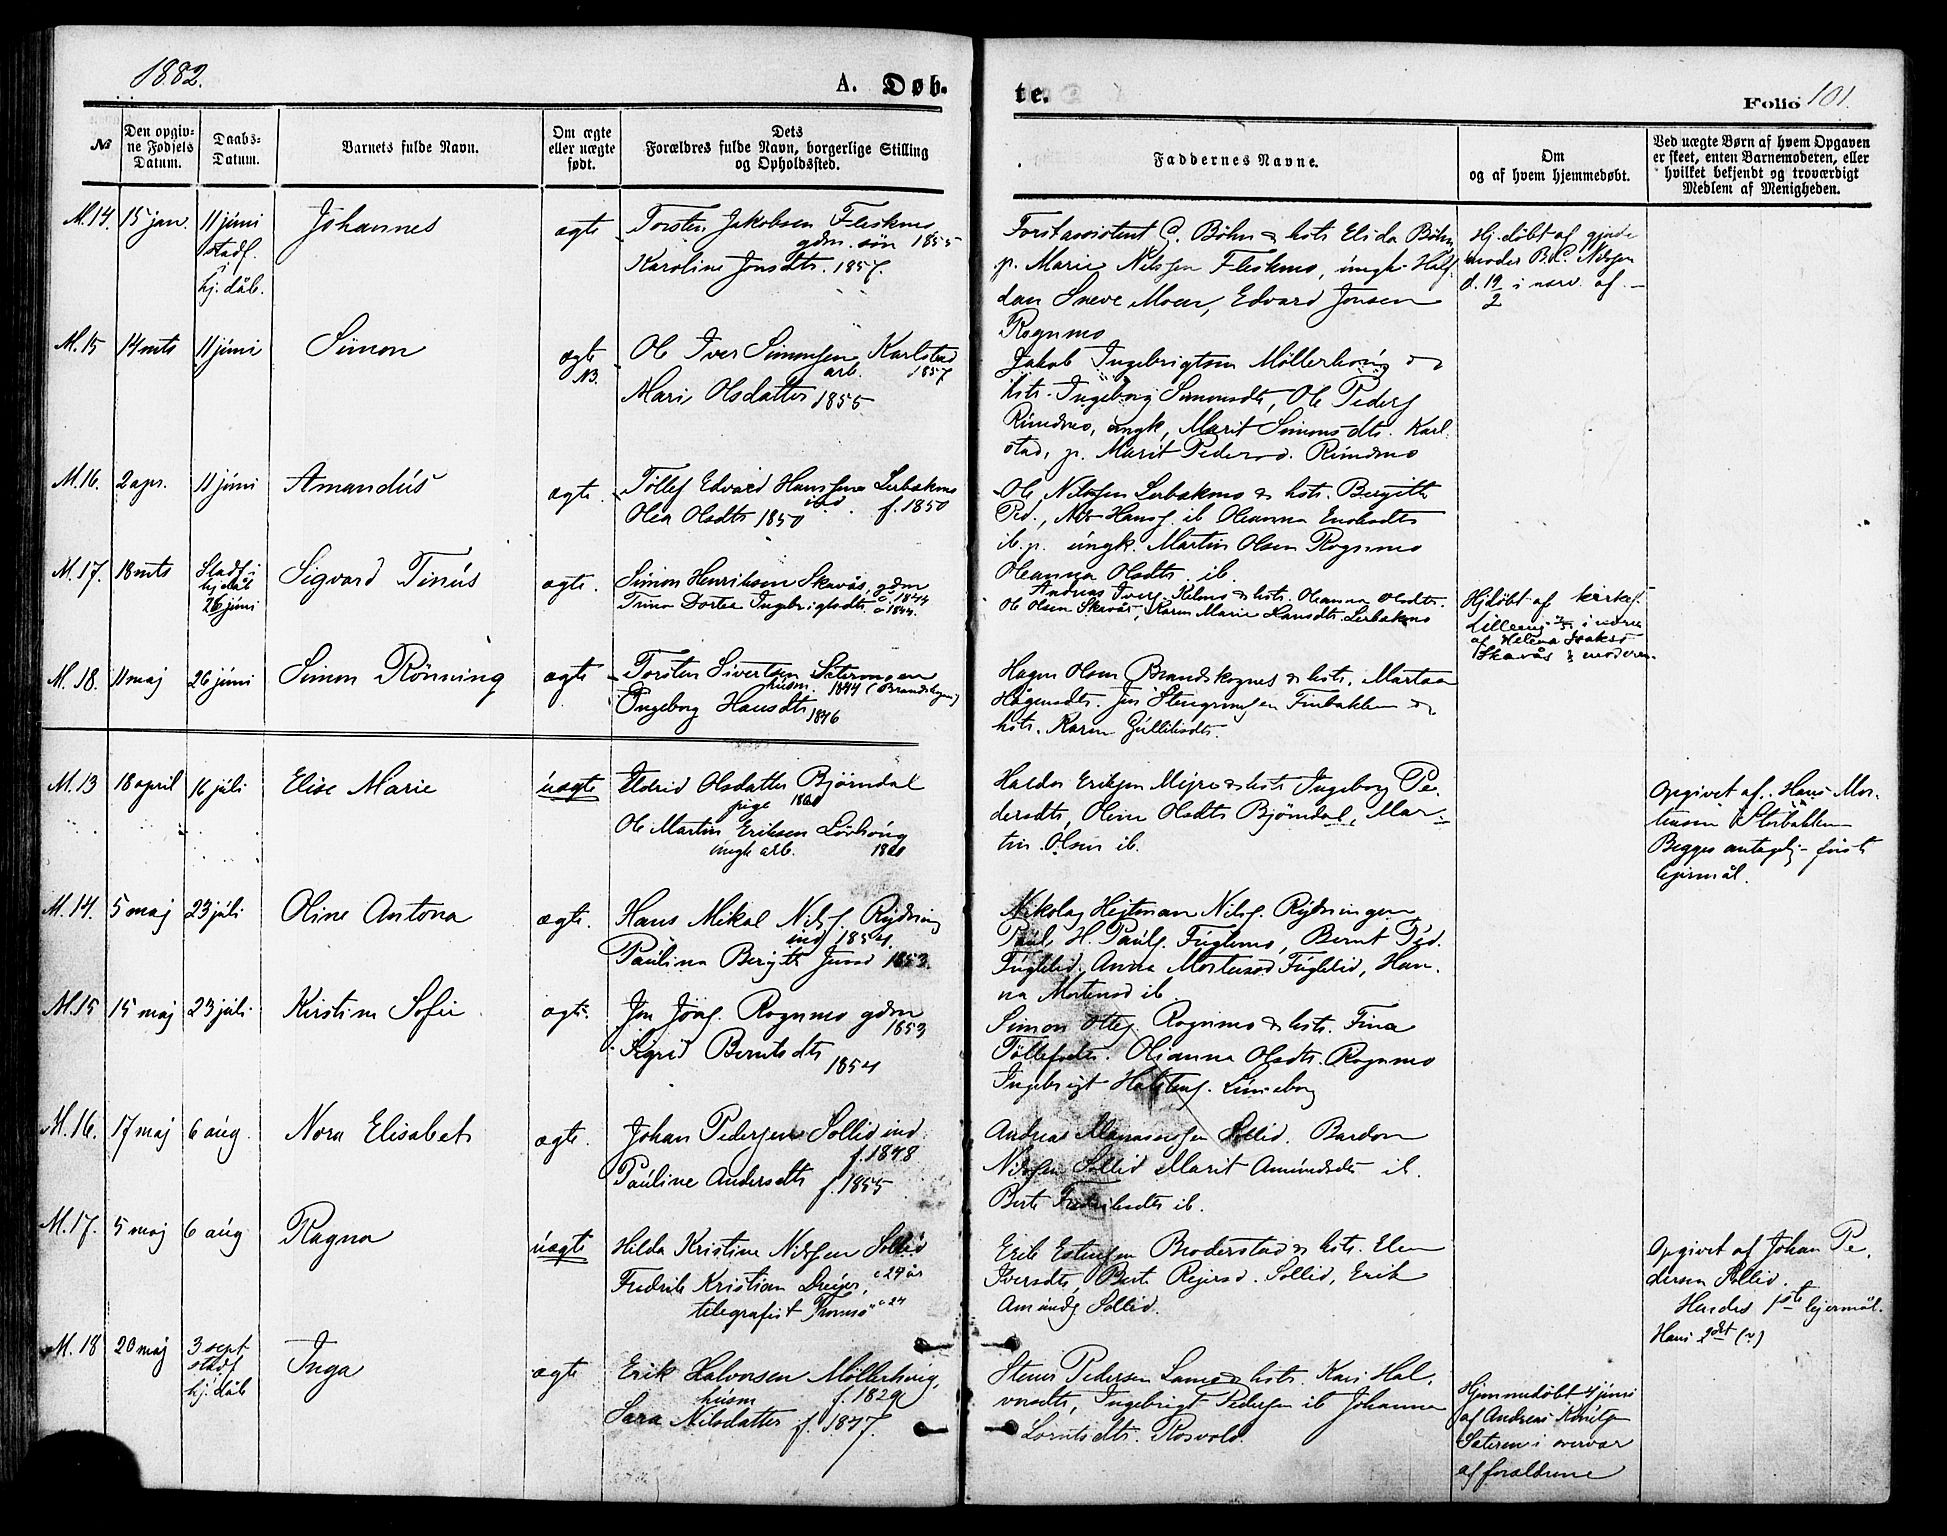 1882.
A. Døb-
te.
Folio 101.
№
Den opgiv-
ne Fødsels
Datum.
Daabs-
Datum.
Barnets fulde Navn.
Om ægte
eller uægte
født.
Dets
Forældres fulde Navn, borgerlige Stilling
og Opholdssted.
Faddernes Navne.
Om
og af hvem hjemmedøbt.
Ved uægte Børn af hvem Opgaven
er skeet, enten Barnemoderen, eller
hvilket bekjendt og troværdigt
Medlem af Menigheden.
M.14. 15 jan. 11 júni
stadf.
hj.dåb.
Johannes
ægte
Torsten Jakobsen Fleskmo
gdm. søn 1855
Karoline Jonsdtr. 1857.
Forstassistent G. Böhn & hstr. Elida Böhn
p. Marie Nilsen Fleskmo, ungk. Half-
dan Sneve Moen, Edvard Jonsen
Rognmo
Hj.døbt af gjorde
moder B.C. Nilsen
d. 19/2 i nærv. af
M.15 14 mts 11 júni
Simon
ægte
NB.
Ole Iver Simonsen Karlstad
arb. 1857
Mari Olsdatter 1855
Jakob Ingebrigtsen Møllerhaúg &
hstr. Ingeborg Simonsdtr, Ole Peders.
Rúndmo, úngk, Marit Simonsdtr. Karl-
stad, p. Marit Pedersd. Rúndmo
M.16. 2 apr. 11 júni
Amandús
ægte.
Tollef Edvard Hanssen Lerbakmo
ind. f. 1850
Olea Olsdtr 1850
Ole Nilssen Lerbakmo & hstr. Bergitte
Ped., Nils Hans. ib Oleanna Enoksdtr
ib. p. úngk. Martin Olsen Rognmo
Oleanna Olsdtr. ib.
M.17. 18 mts Stadf. i
hj.dåb
26 júni
Sigvard Tinús
ægte.
Simon Henriksen Skavås, gdm
1844
Trina Dortea Ingebrigtsdtr. 1844.
Andreas Ivers. Kilmo & hstr. Oleanna Olsdtr.
Ole Olsen Skavås, Karen Marie Hansdtr. Lerbakmo
Hjdøbt af kirkes.
Lilleeng i nærv.
af Helena Isaks.
Skavås & moderen.
M.18. 11 maj 26 júni
Simon Rönning
ægte
Torsten Sivertsen Sætermoen
húsm. 1844 (Brandskognes)
Ingeborg Hansdtr 1846
Hagen Olsen Brandskognes & hstr. Martaa
Hågensdtr. Jon Steingrimsen Finbakken &
hstr. Karen Gúllikdtr.
M.13 18 april 16 júli
Elise Marie
úægte
Eldrid Olsdatter Björndal
pige 1860
Ole Martin Eriksen Løvhaúg
úngk arb. 1860
Haldor Eriksen Mejre & hstr Ingeborg Pe-
dersdtr, Oline Olsdtr Björndal, Mar-
tin Olsen ib.
Opgivet af Hans Mor-
tensen Storbakken
Begges antagelig første
lejermål.
M.14. 5 maj 23 júli
Oline Antona
ægte.
Hans Mikal Nils. Rydning
ind 1854.
Paúlina Bergitte Jensd 1853.
Nikolaj Hejtman Nils. Rydningen
Paúl H. Paúls. Fúglemo, Bernt Ped.
Fúglelid, Anna Mortensd Fúglelid, Han-
na Mortensd ib
M.15 15 maj 23 júli
Kirstine Sofie
ægte.
Jon Jons. Rognmo gdm
1853
Sigrid Berntsdtr
1854
Simon Ottes. Rognmo & hstr. Fina
Tollefsdtr. Olianna Olsdtr. Rognmo
Ingebrigt Halstens. Lúneborg
M.16. 17 maj 6 aúg.
Nora Elisabet
ægte.
Johan Pedersen Sollid ind
f. 1848
Paúline Andersdtr f. 1855
Andreas Manassesen Sollid. Bardon
Nilssen Sollid Marit Amúndsdtr ib.
Berte Fredriksdtr ib.
M.17. 5 maj 6 aúg
Ragna
úægte
Hilda Kristine Nilssen Sollid
24 år
Fredrik Kristian Dreijer,
telegrafist Tromsø 24
Erik Estensen Broderstad & hstr. Elen
Iversdtr, Berte Rejersd. Sollid, Erik
Amúnds Sollid.
Opgivet af Johan Pe-
dersen Sollid.
Hendes 1ste lejermål.
Hans 2det (?)
M.18 20 maj 3 sept
stadf
hj.dåb
Inga
ægte
Erik Halvorsen Möllerhaúg,
húsm f. 1829
Sara Nilsdatter f. 1847.
Stener Pedersen Lame & hstr. Kari Hal-
vorsdtr, Ingebrigt Pedersen ib Johanna
Lorntsdtr. Rosvold.
Hjemmedøbt 4 júni
af Andreas Knúts.
Sæteren i overvær
af forældrene